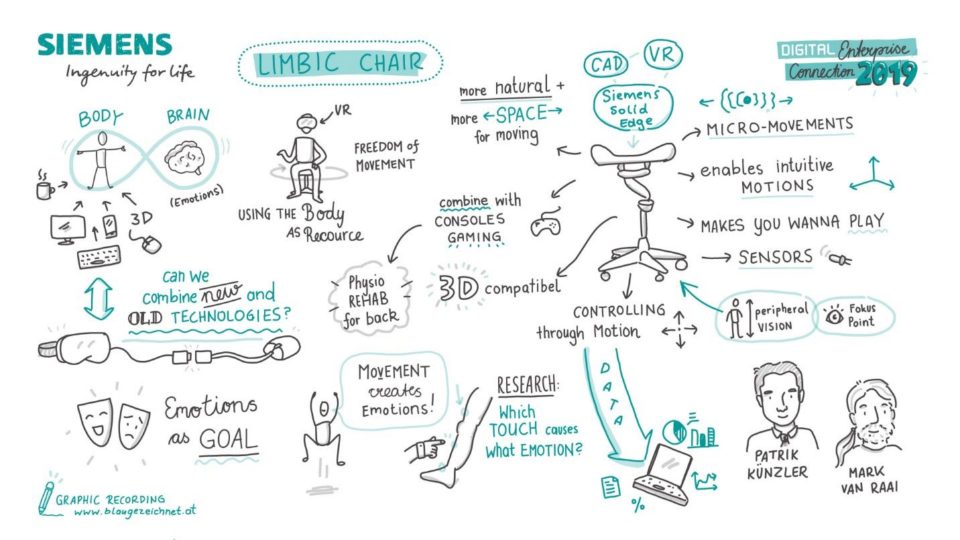 SIEMENS
Ingenuity for life
LIMBIC CHAIR
DIGITAL Enterprise
Connection 2019
BODY
BRAIN
(Emotions)
3D
VR
FREEDOM of
MOVEMENT
USING THE Body
AS RECOURCE
more natural +
more SPACE
for moving
CAD
VR
Siemens
Solid
Edge
MICRO-MOVEMENTS
enables intuitive
MOTIONS
MAKES YOU WANNA PLAY
SENSORS
combine with
CONSOLES
GAMING
Physio
REHAB
for back
3D compatibel
CONTROLLING
through Motion
peripheral
VISION
Fokus
Point
can we
combine new and
OLD TECHNOLOGIES?
Emotions
as GOAL
MOVEMENT
creates
Emotions!
RESEARCH:
Which
TOUCH causes
what EMOTION?
DATA
%
PATRIK
KÜNZLER
MARK
VAN RAAI
GRAPHIC RECORDING
www.blaugezeichnet.at